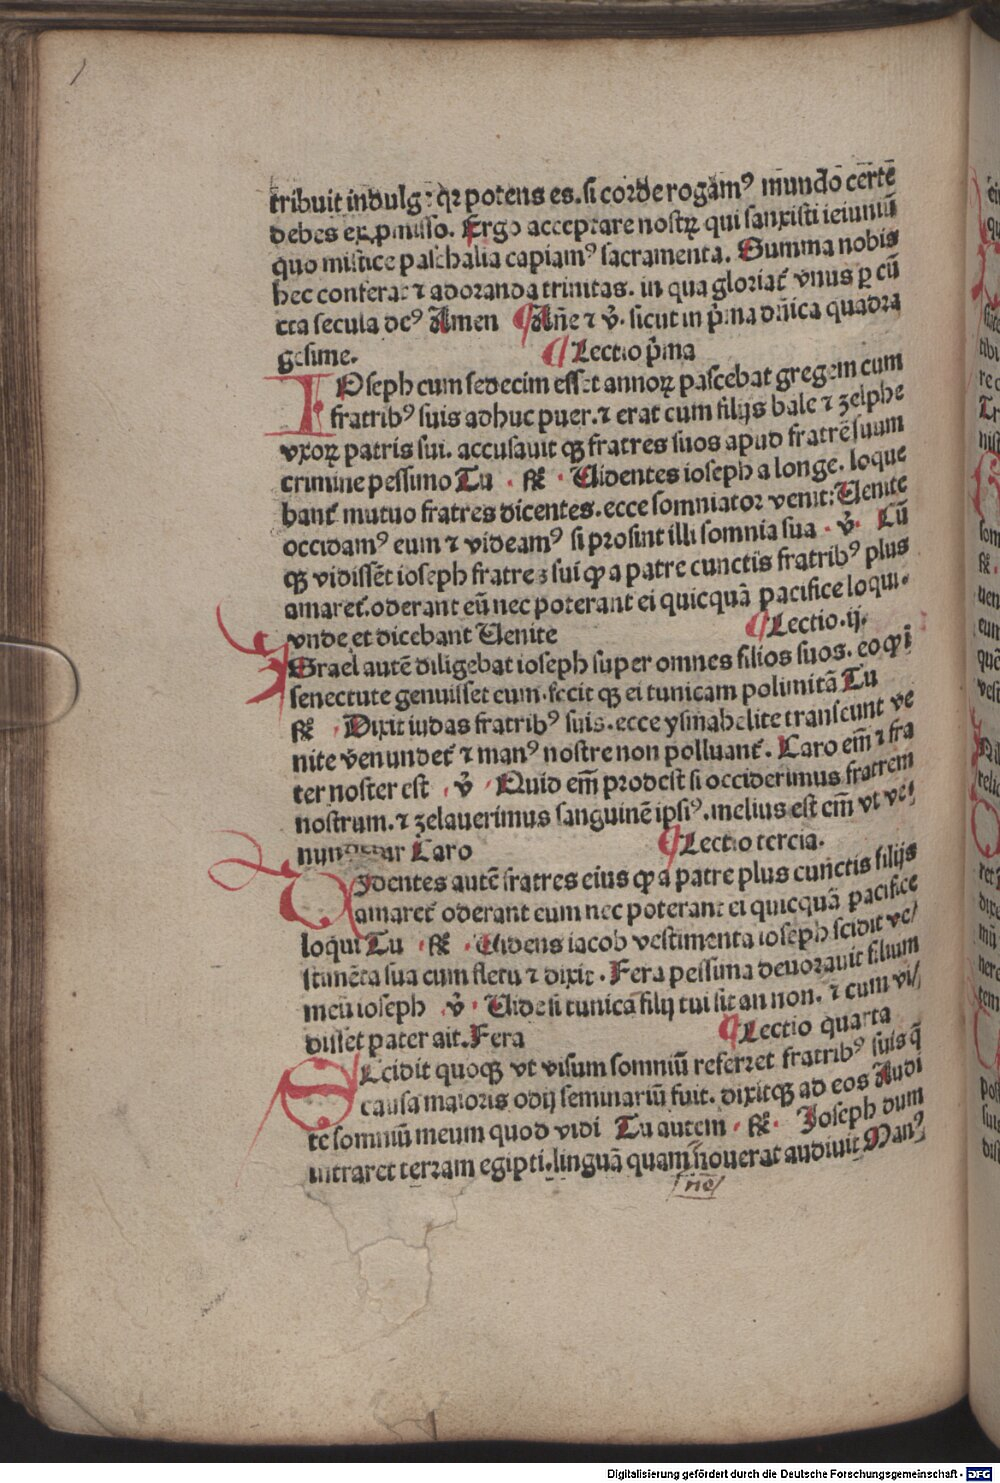 tribuit indulgꝫ qꝛ potens es. si corde rogamꝰ mundo certe
debes ex ꝓmisso. Ergo acceptare nostꝝ qui sanxisti ieiuniū
quo mistice paschalia capiamꝰ sacramenta. Summa nobis
hec conferat ⁊ adoranda trinitas. in qua gloriat᷑ vnus ꝑ cū
cta secula deꝰ Amen ¶ Añe ⁊ v̊. sicut in pͥma dñica quadra
gesime. ¶ Lectio pͥma
IOseph cum sedecim esset annoꝝ pascebat gregem cum
fratribꝰ suis adhuc puer. ⁊ erat cum filijs bale ⁊ zelphe
vxoꝝ patris sui. accusauit qꝫ fratres suos apud fratrē suum
crimine pessimo Tu . ꝶ . Uidentes ioseph a longe. loque
bant᷑ mutuo fratres dicentes. ecce somniator venit: Uenite
occidamꝰ eum ⁊ videamꝰ si prosint illi somnia sua . v̊ . Cū
qꝫ vidissēt ioseph fratres sui ꝙ a patre cunctis fratribꝰ plus
amaret᷑. oderant eū nec poterant ei quicquā pacifice loqui.
vnde et dicebant Uenite ¶ Lectio .ij.
ISrael autē diligebat ioseph super omnes filios suos. eo ꝙ ī
senectute genuisset eum. fecit qꝫ ei tunicam polimitā Tu
ꝶ . Dixit iudas fratribꝰ suis. ecce ysmahelite transeunt ve
nite venundet᷑ ⁊ manꝰ nostre non polluant᷑. Caro em̄ ⁊ fra
ter noster est . v̊ . Quid em̄ prodest si occiderimus fratrem
nostrum. ⁊ zelauerimus sanguinē ipsiꝰ. melius est em̄ vt ve/
nundetur Caro ¶ Lectio tercia.
UIdentes autē fratres eius ꝙ a patre plus cunctis filijs
amaret᷑ oderant eum nec poterant ei quicquā pacifice
loqui Tu . ꝶ . Uidens iacob vestimenta ioseph scidit ve/
stimēta sua cum fletu ⁊ dixit . Fera pessima deuorauit filium
meū ioseph . v̊ . Uide si tunica filij tui sit an non. ⁊ cum vi/
disset pater ait. Fera ¶ Lectio quarta
ACcidit quoqꝫ vt visum somniū referret fratribꝰ suis q̄
causa maioris odij seminariū fuit. dixitqꝫ ad eos Audi
te somniū meum quod vidi Tu autem . ꝶ . Ioseph dum
intraret terram egipti. linguā quam nouerat audiuit Manꝰ